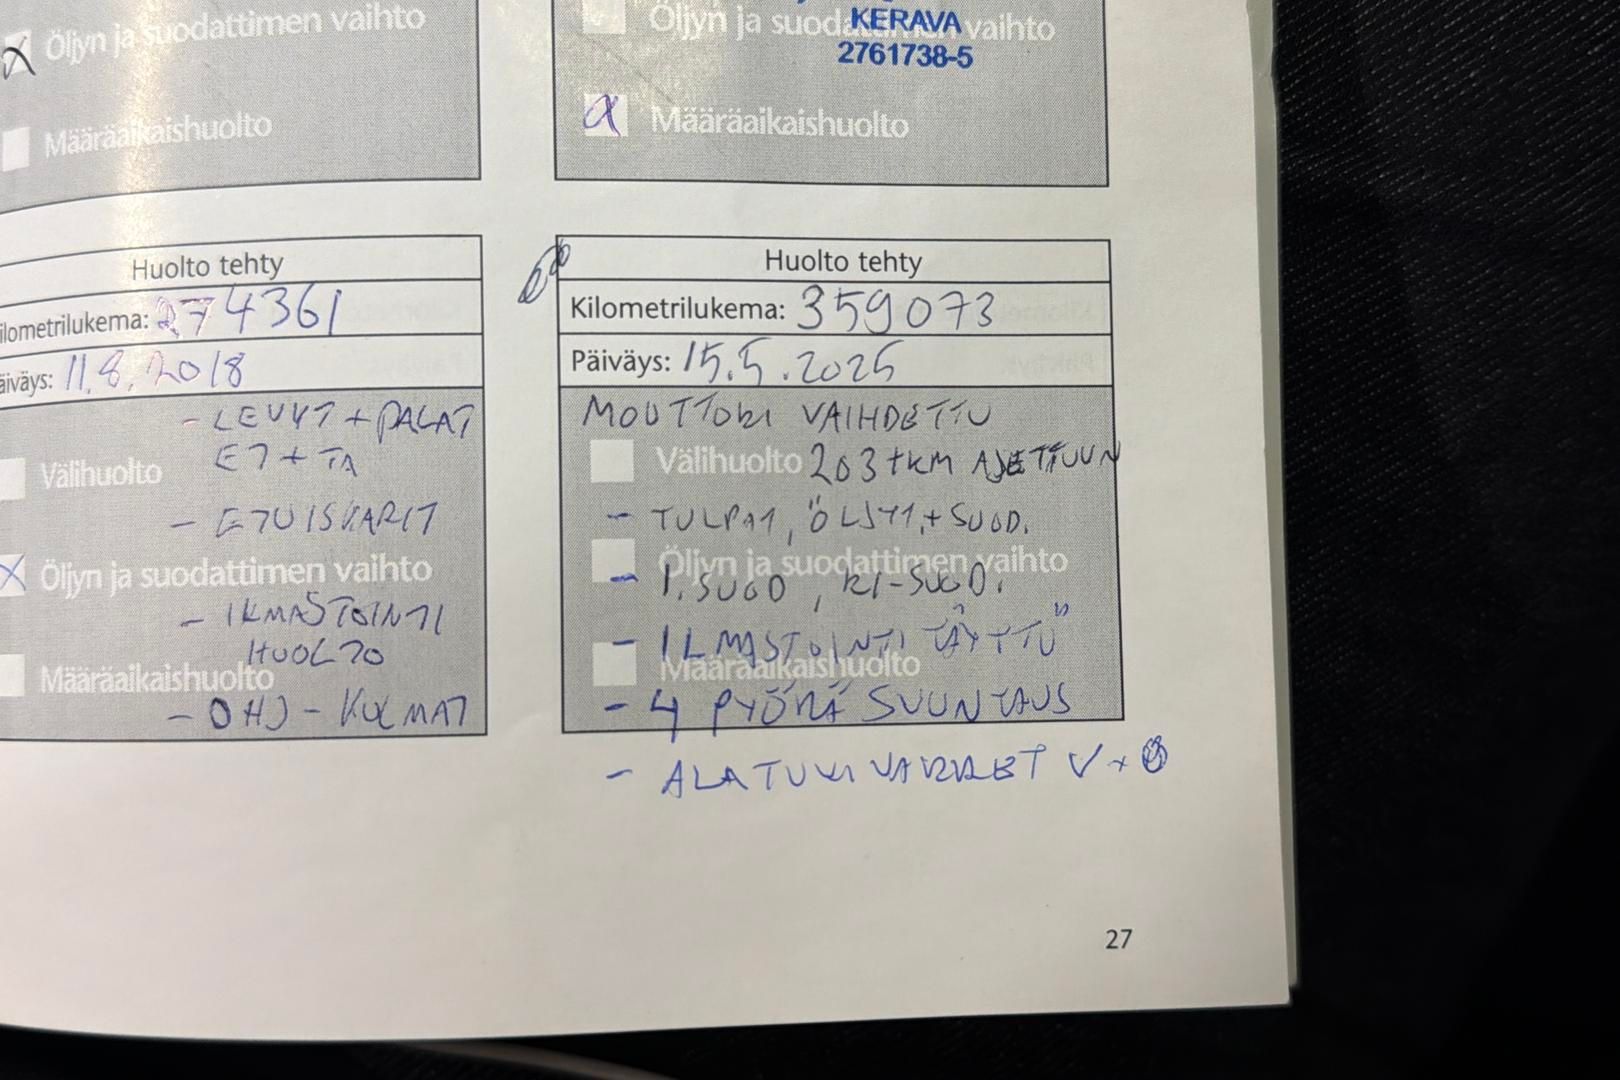 Öljyn ja suodattimen vaihto
Määräaikaishuolto
KERAVA
Öljyn ja suodattimen vaihto
2761738-5
Määräaikaishuolto
Huolto tehty
ilometrilukema: 274361
äiväys: 11.8.2018
- LEVYT + PALAT
ET + TA
Välihuolto
- ETUISKARIT
Öljyn ja suodattimen vaihto
- ILMASTOINTI
HUOLTO
Määräaikaishuolto
- OHJ - KULMAT
Huolto tehty
Kilometrilukema: 359073
Päiväys: 15.5.2025
MOOTTORI VAIHDETTU
Välihuolto 203 tKM AJETTUUN
- TULPAT, ÖLJYT, + SUOD.
Öljyn ja suodattimen vaihto
- I.SUOD, RI-SUOD.
- ILMASTOINTI TÄYTTÖ
Määräaikaishuolto
- 4 PYÖRÄ SUUNTAUS
- ALATUKIVARRET V +
27